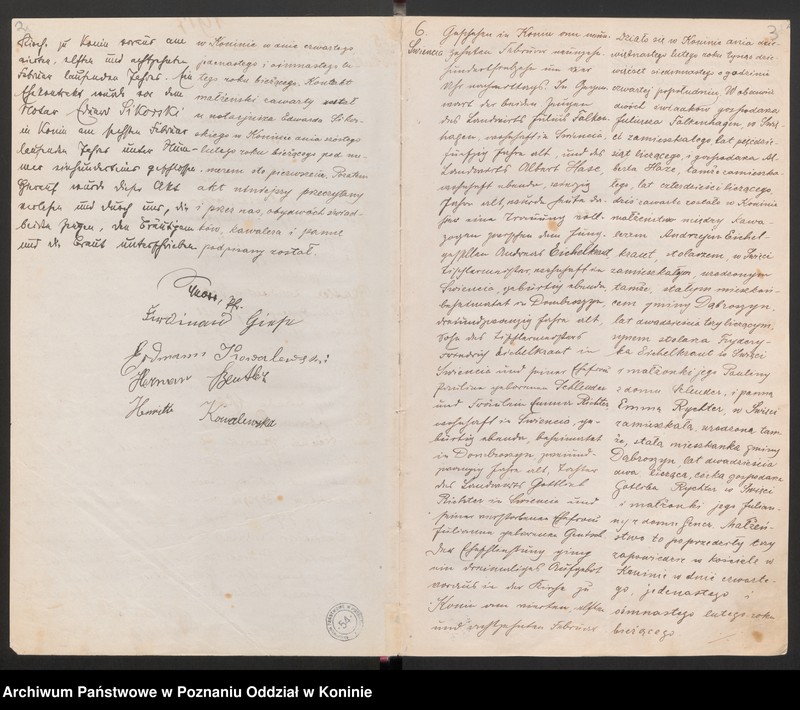 2.
Kirche zu Konin voraus am
vierten, elften und achtzehnten
Februar laufenden Jahres. Ein
Ehekontrakt wurde vor dem
Notar Eduard Sikorski
in Konin am sechsten Februar
laufenden Jahres unter Num-
mer geschlossen.
Hierauf wurde dieser Akt
verlesen und durch uns, die
beiden Zeugen, den Bräutigam
und die Braut unterschrieben.
w Koninie w dnie czwartego,
jedenastego i ośmnastego lu-
tego roku bieżącego. Kontrakt
małżeński zawarty został
u notarjusza Edwarda Sikor-
skiego w Koninie dnia szóstego
lutego roku bieżącego pod nu-
merem do pierwsze. Poczem
akt niniejszy przeczytany
i przez nas, obydwóch świad-
ków, kawalera i pannę
podpisany został.
Ferdinand Giese
Erdmann Kowalewski
Herman
Henriette Kowalewska
54
3
6.
Swiencia
Geschehen in Konin am neun-
zehnten Februar neunzehn-
hundertsiebzehn um vier
Uhr nachmittags. In Gegen-
wart der beiden Zeugen
des Landwirts Julius Falken-
hagen, wohnhaft in Swiencia,
fünfzig Jahre alt, und des
Landwirts Albert Hase,
wohnhaft ebenda, vierzig
Jahre alt, wurde heute da-
hier eine Trauung voll-
zogen zwischen dem Jung-
gesellen Andreas Eichelkraut,
Tischlermeister, wohnhaft in
Swiencia, gebürtig ebenda,
beheimatet in Dombroszyn,
dreiundzwanzig Jahre alt,
Sohn des Tischlermeisters
Friedrich Eichelkraut in
Swiencia und seiner Ehefrau
Paulina geborenen Schlender
und Fräulein Emma Richter,
wohnhaft in Swiencia, ge-
bürtig ebenda, beheimatet
in Dombroszyn, zweiund-
zwanzig Jahre alt, Tochter
des Landwirts Gottlieb
Richter in Swiencia und
seiner verstorbenen Ehefrau
Julianna geborenen Gentsch.
Der Eheschließung ging
ein dreimaliges Aufgebot
voraus in der Kirche zu
Konin am vierten, elften
und achtzehnten Februar
Działo się w Koninie dnia dzie-
więtnastego lutego roku tysiąc dzie-
więćset siedmnastego o godzinie
czwartej popołudniu. W obecności
dwóch świadków gospodarza
Juliusza Falkenhagen, w Świę-
ci zamieszkałego, lat pięćdzie-
siąt liczącego, i gospodarza Al-
berta Haze, tamże zamieszka-
łego, lat czterdzieści liczącego,
dziś zawarte zostało w Koninie
małżeństwo między kawa-
lerem Andrzejem Eichel-
kraut, stolarzem, w Święci
zamieszkałym, urodzonym
tamże, stałym mieszkań-
cem gminy Dąbroszyn,
lat dwadzieścia trzy liczącym,
synem stolarza Frydery-
ka Eichelkraut w Święci
i małżonki jego Pauliny
z domu Szlender, i panną
Emmą Rychter, w Święci
zamieszkałą, urodzoną tam-
że, stałą mieszkanką gminy
Dąbroszyn, lat dwadzieścia
dwa liczącą, córką gospodarza
Gotliba Rychter w Święci
i małżonki jego Julian-
ny z domu Gencz. Małżeń-
stwo to poprzedziły trzy
zapowiedzie w kościele w
Koninie w dnie czwarte-
go, jedenastego i
ośmnastego lutego roku
bieżącego
Archiwum Państwowe w Poznaniu Oddział w Koninie